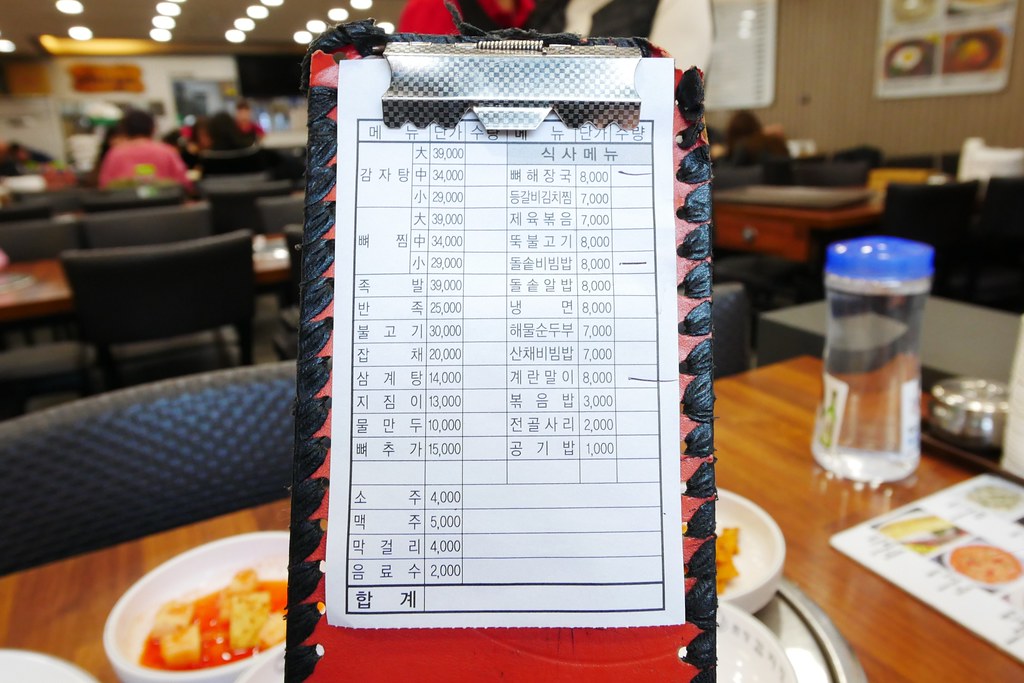 메 뉴 단가 수량 메 뉴 단가 수량
大 39,000 식사메뉴
감자탕 中 34,000 뼈해장국 8,000
小 29,000 등갈비김치찜 7,000
大 39,000 제육볶음 7,000
뼈 찜 中 34,000 뚝불고기 8,000
小 29,000 돌솥비빔밥 8,000
족 발 39,000 돌솥알밥 8,000
반 족 25,000 냉 면 8,000
불고기 30,000 해물순두부 7,000
잡 채 20,000 산채비빔밥 7,000
삼계탕 14,000 계란말이 8,000
지짐이 13,000 볶음밥 3,000
물만두 10,000 전골사리 2,000
뼈추가 15,000 공기밥 1,000
소 주 4,000
맥 주 5,000
막걸리 4,000
음료수 2,000
합 계